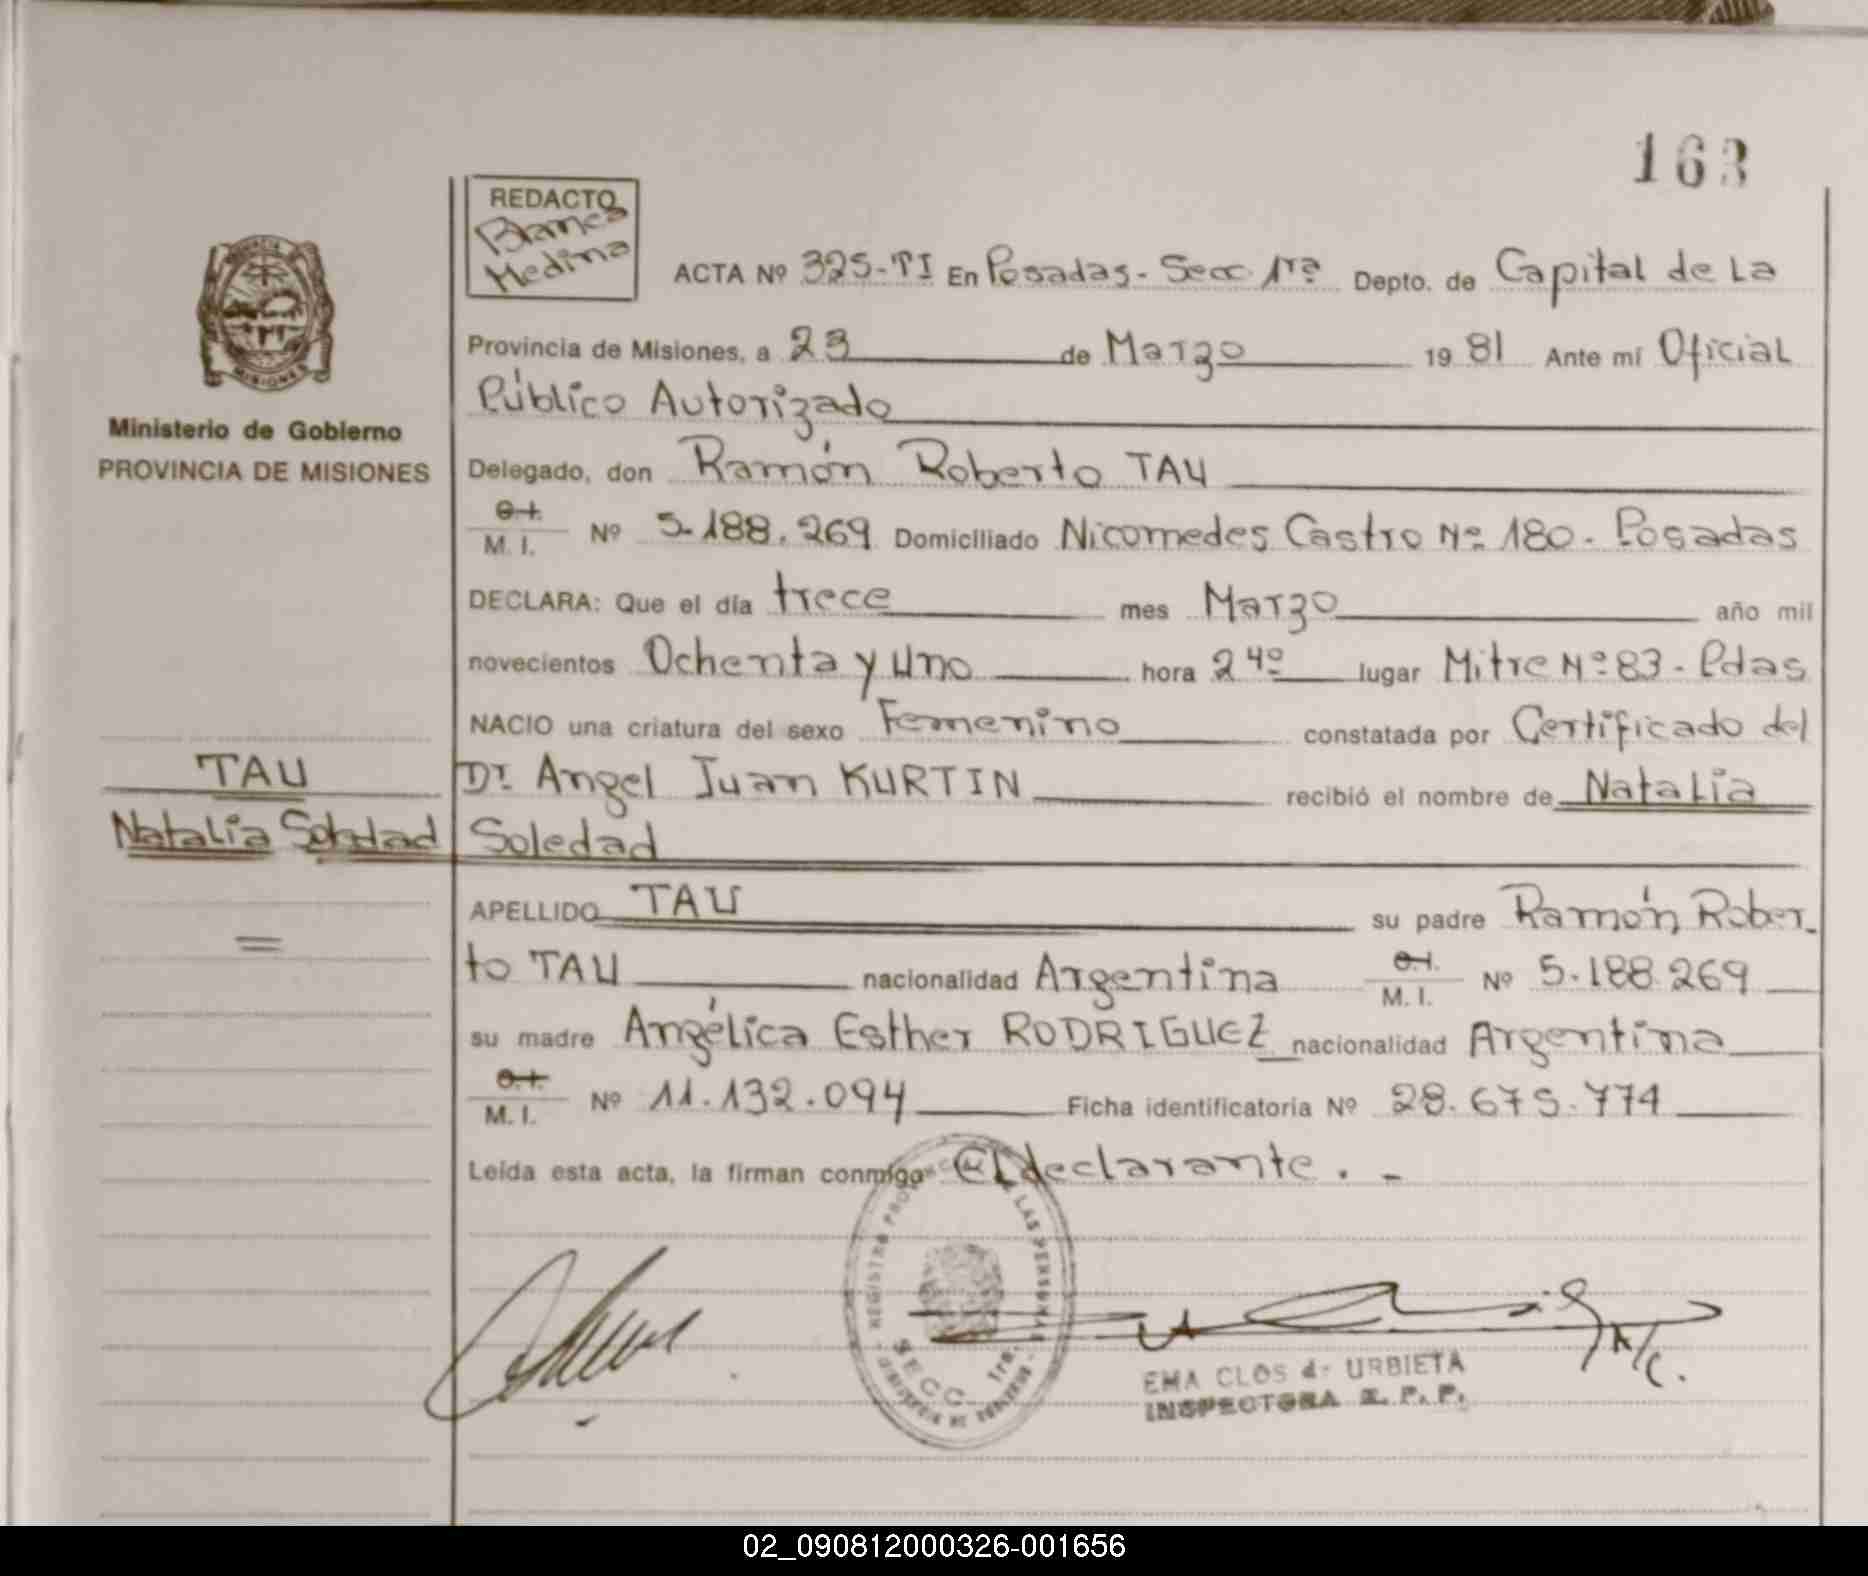 163
REDACTO
Blanca
Medina
ACTA Nº 325-TI En Posadas - Secc 1ra Depto. de Capital de La
Provincia de Misiones, a 23 de Marzo 19 81 Ante mí Oficial
Público Autorizado
Ministerio de Gobierno
PROVINCIA DE MISIONES
Delegado, don Ramón Roberto TAU
C.I.
M. I. Nº 5.188.269 Domiciliado Nicomedes Castro Nº 180 - Posadas
DECLARA: Que el día trece mes Marzo año mil
novecientos Ochenta y Uno hora 24º lugar Mitre Nº 83 - Pdas
NACIO una criatura del sexo Femenino constatada por Certificado del
TAU
Dr. Angel Juan KURTIN recibió el nombre de Natalia
Natalia Soledad
Soledad
APELLIDO TAU su padre Ramón Rober-
to TAU nacionalidad Argentina C.I.
M. I. Nº 5.188.269
su madre Angélica Esther RODRIGUEZ nacionalidad Argentina
C.I.
M. I. Nº 11.132.094 Ficha identificatoria Nº 28.675.774
Leída esta acta, la firman conmigo El declarante. -
REGISTRO PROVINCIAL DE LAS PERSONAS
SECC. 1ra.
EMA CLOS de URBIETA
INSPECTORA R. P. P.
PROVINCIA
MISIONES
02_090812000326-001656